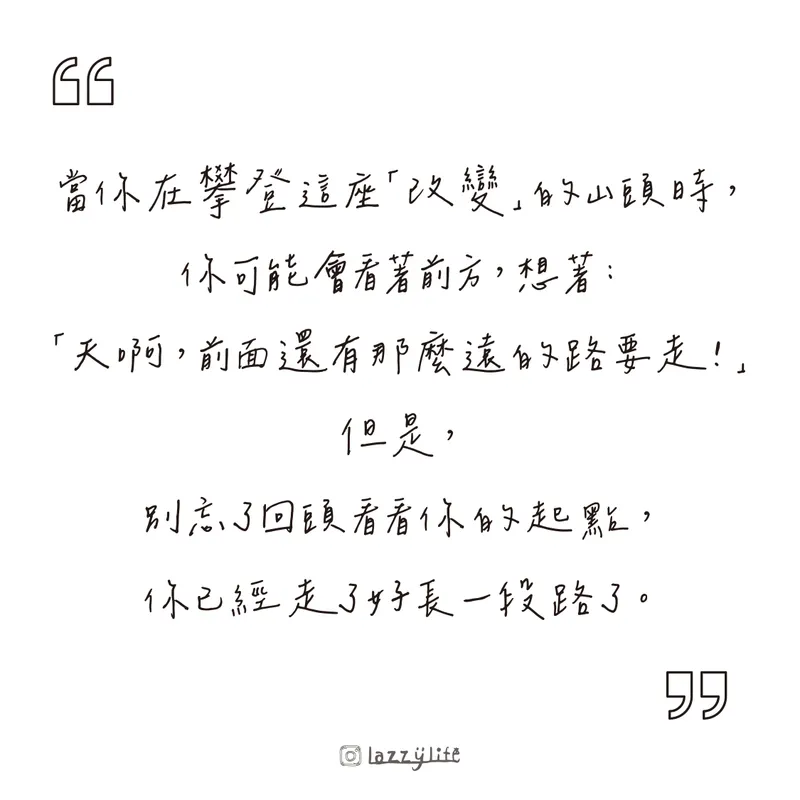 當你在攀登這座「改變」的山頭時，
你可能會看著前方，想著：
「天啊，前面還有那麼遠的路要走！」
但是，
別忘了回頭看看你的起點，
你已經走了好長一段路了。
lazzylife